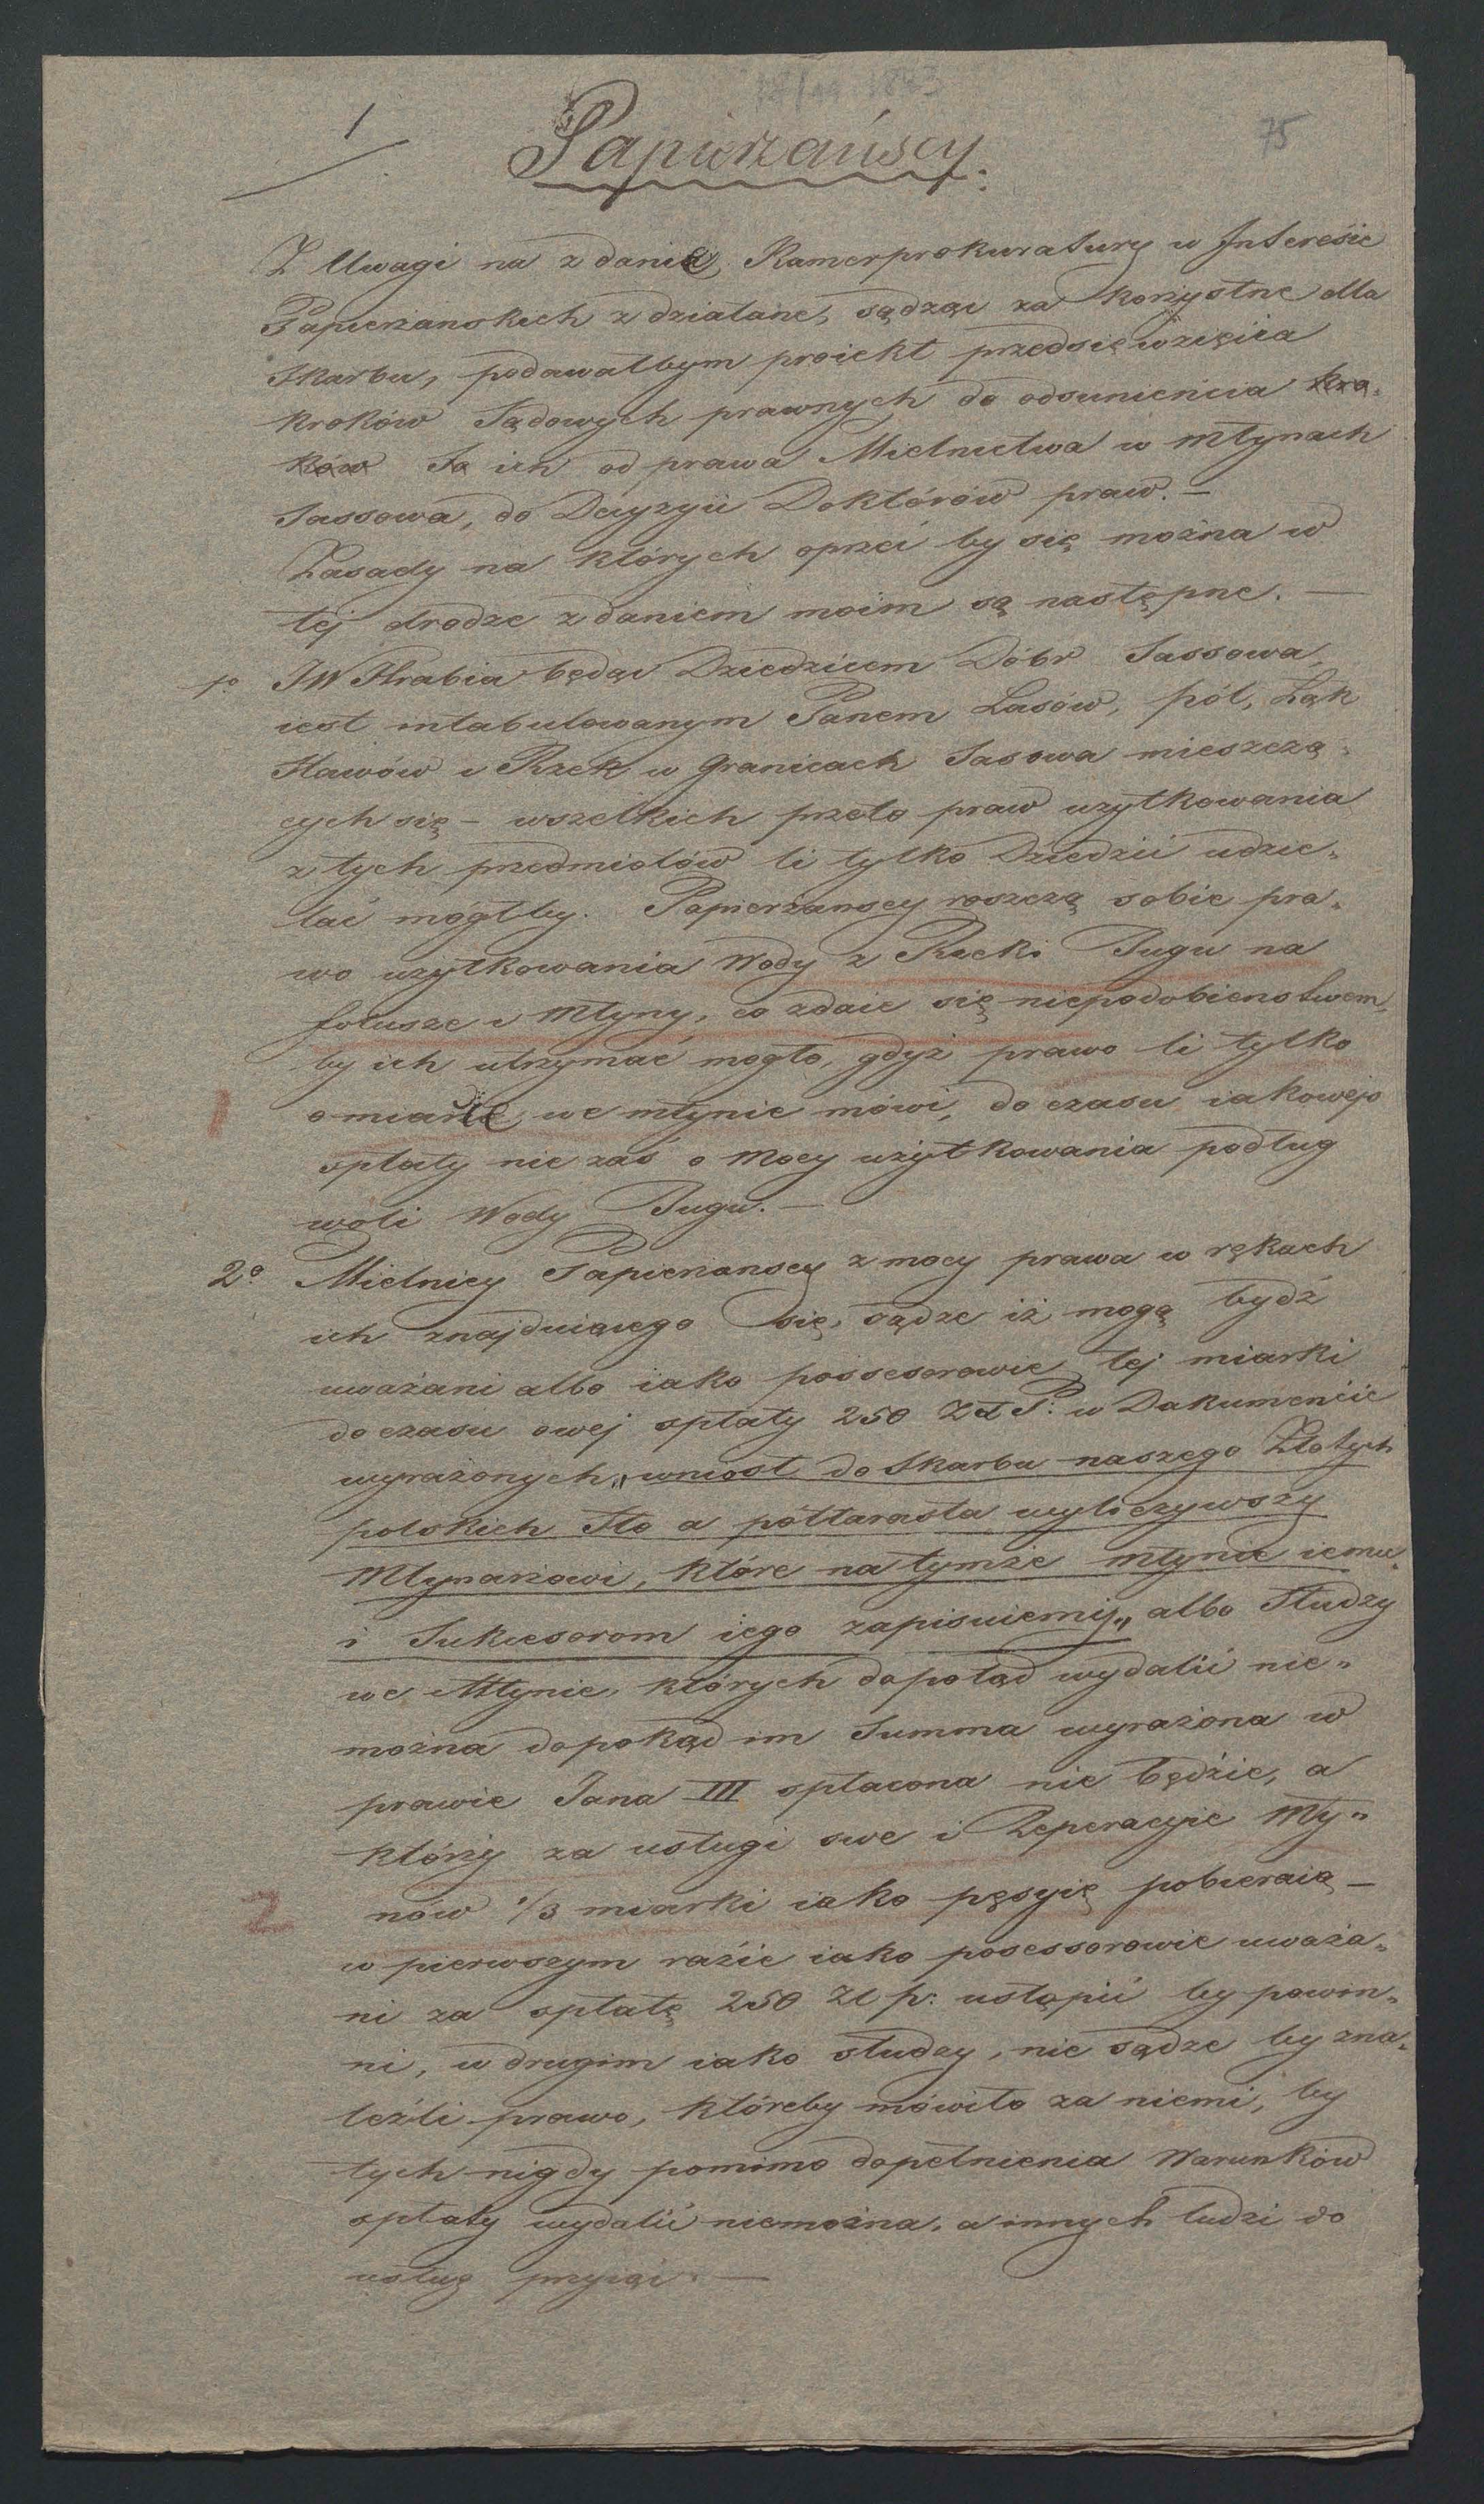 1
75
Papierzańscy.
Z Uwagi na zdanie Kamerprokuratury w Interesie
Papierzanskich zdziałane, sądząc za korzystne dla
Skarbu, podawałbym proiekt przedsięwzięcia
kroków Sądowych prawnych do odsunienia kro„
ków Są ich od prawa Mielnictwa w Młynach
Sassowa, do Decyzyii Doktórów praw. —
Zasady na których oprzeć by się można w
tej drodze zdaniem moim są następne. —
1o JW Hrabia będąc Dziedzicem Dóbr Sassowa,
iest intabulowanym Panem Lasów, pól, Łąk
Stawów i Rzek w Granicach Sasowa mieszczą„
cych się – wszelkich przeto praw użytkowania
z tych przedmiotów li tylko Dziedzic udzie„
lać mógłby. Papierzanscy roszczą sobie pra„
wo użytkowania Wody z Rzeki Bugu na
folusze i Młyny, co zdaie się niepodobienstwem,
by ich utrzymać mogło, gdyż prawo li tylko
1 o miarce we młynie mówi, do czasu iakowejs
opłaty nie zaś o Mocy użytkowania podług
woli Wody Bugu. —
2o Mielnicy Papierzanscy z mocy prawa w rękach
ich znajduiącego się, sądze iż mogą bydź
uważani albo iako possesorowie tej miarki
do czasu owej opłaty 250 Zł P: w Dokumencie
wyrażonych „wniosł do Skarbu naszego Złotych
polskich Sto a półtarasta wyliczywszy
Młynarzowi, które na tymże młynie iemu
i Sukcesorom iego zapisuiemy„ albo Słudzy
we Młynie, których dopotąd wydalić nie„
można dopokąd im Summa wyrażona w
prawie Jana III opłacona nie będzie, a
którzy za usługi swe i Reperacyie Mły„
2 nów 1/3 miarki iako pęsyię pobieraią —
w pierwszym raźie iako posessorowie uważa„
ni za opłatę 250 Zł p: ustąpić by powin„
ni, w drugim iako słudzy, nie sądze by zna„
leźli prawo, któreby mówiło za niemi, by
tych nigdy pomimo dopełnienia Warunków
opłaty wydalić niemożna, a innych ludzi do
usług przyiąć. —